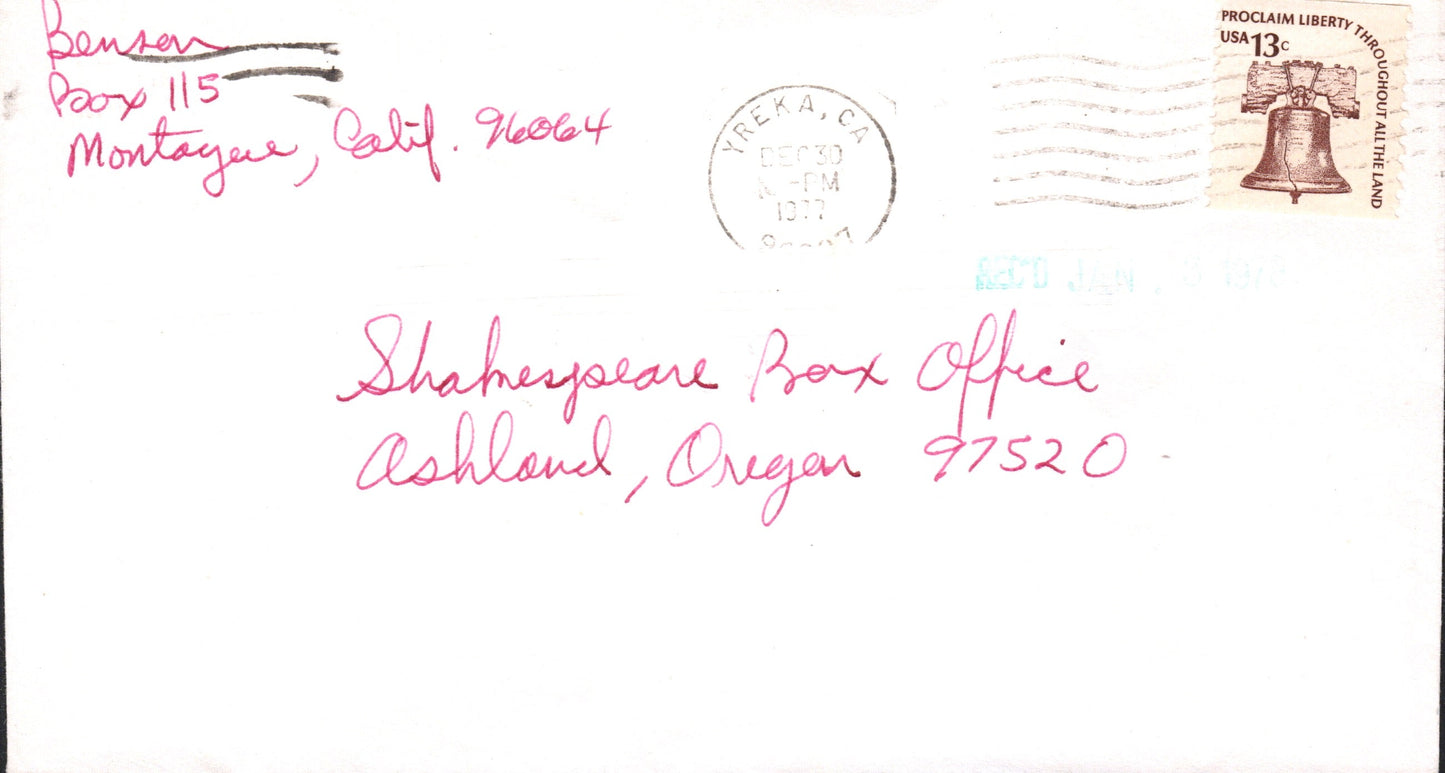 Benson
Box 115
Montague, Calif. 96064
YREKA, CA
DEC 30
PM
1977
PROCLAIM LIBERTY THROUGHOUT ALL THE LAND
USA 13c
Shakespeare Box Office
Ashland, Oregon 97520